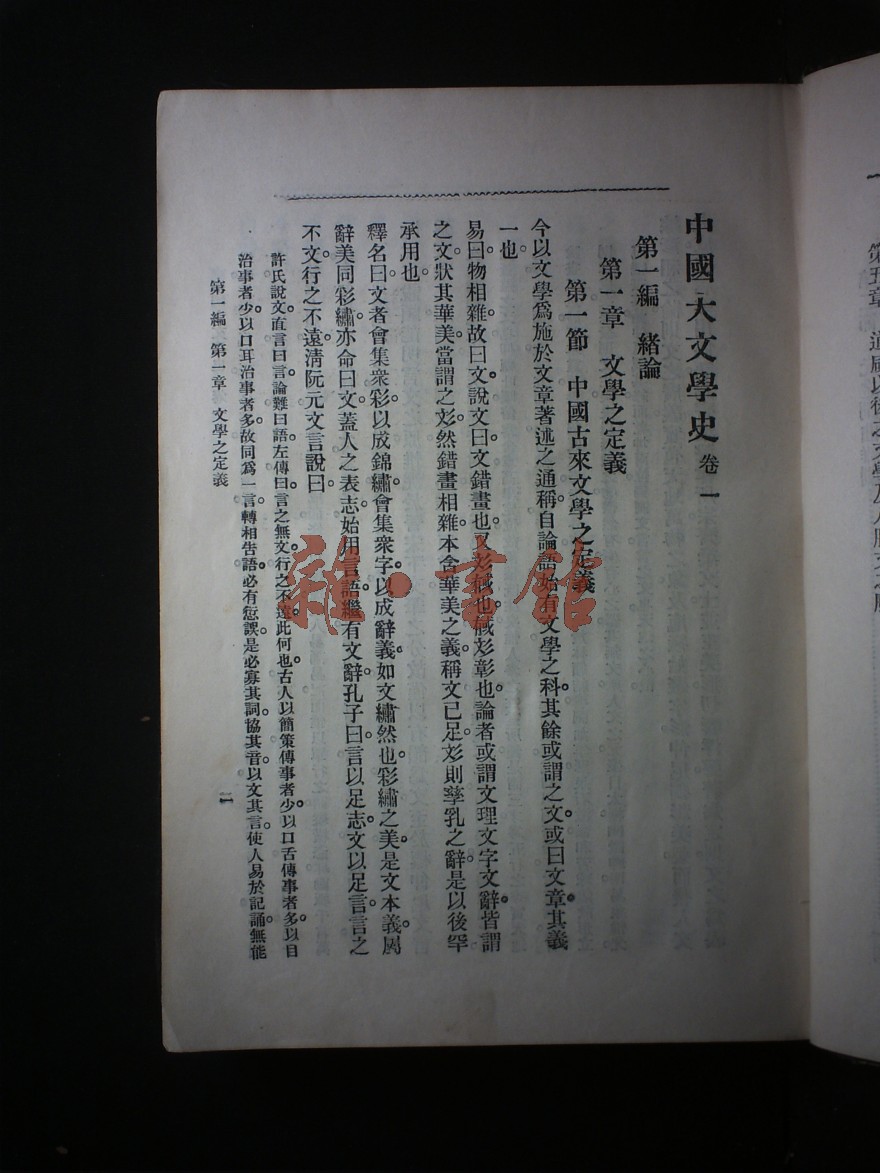 中國大文學史 卷一
第一編 緒論
第一章 文學之定義
第一節 中國古來文學之定義
今以文學爲施於文章著述之通稱。自論語始有文學之科。其餘或謂之文。或曰文章。其義
一也。
易曰物相雜。故曰文。說文曰文錯畫也。又彣䬑也。䬑彣彰也。論者或謂文理文字文辭。皆謂
之文。狀其華美。當謂之彣。然錯畫相雜。本含華美之義。稱文已足。彣則孳乳之辭。是以後罕
承用也。
釋名曰文者會集衆彩。以成錦繡。會集衆字。以成辭義。如文繡然也。彩繡之美。是文本義。屬
辭美同彩繡。亦命曰文。蓋人之表志。始用言語。繼有文辭。孔子曰。言以足志。文以足言。言之
不文。行之不遠。淸阮元文言說曰。
許氏說文。直言曰言。論難曰語。左傳曰。言之無文。行之不遠。此何也。古人以簡策傳事者少。以口舌傳事者多。以目
治事者少。以口耳治事者多。故同爲一言。轉相告語。必有愆誤。是必寡其詞。協其音。以文其言。使人易於記誦。無能
第一編 第一章 文學之定義
一
雜·書館
第五章